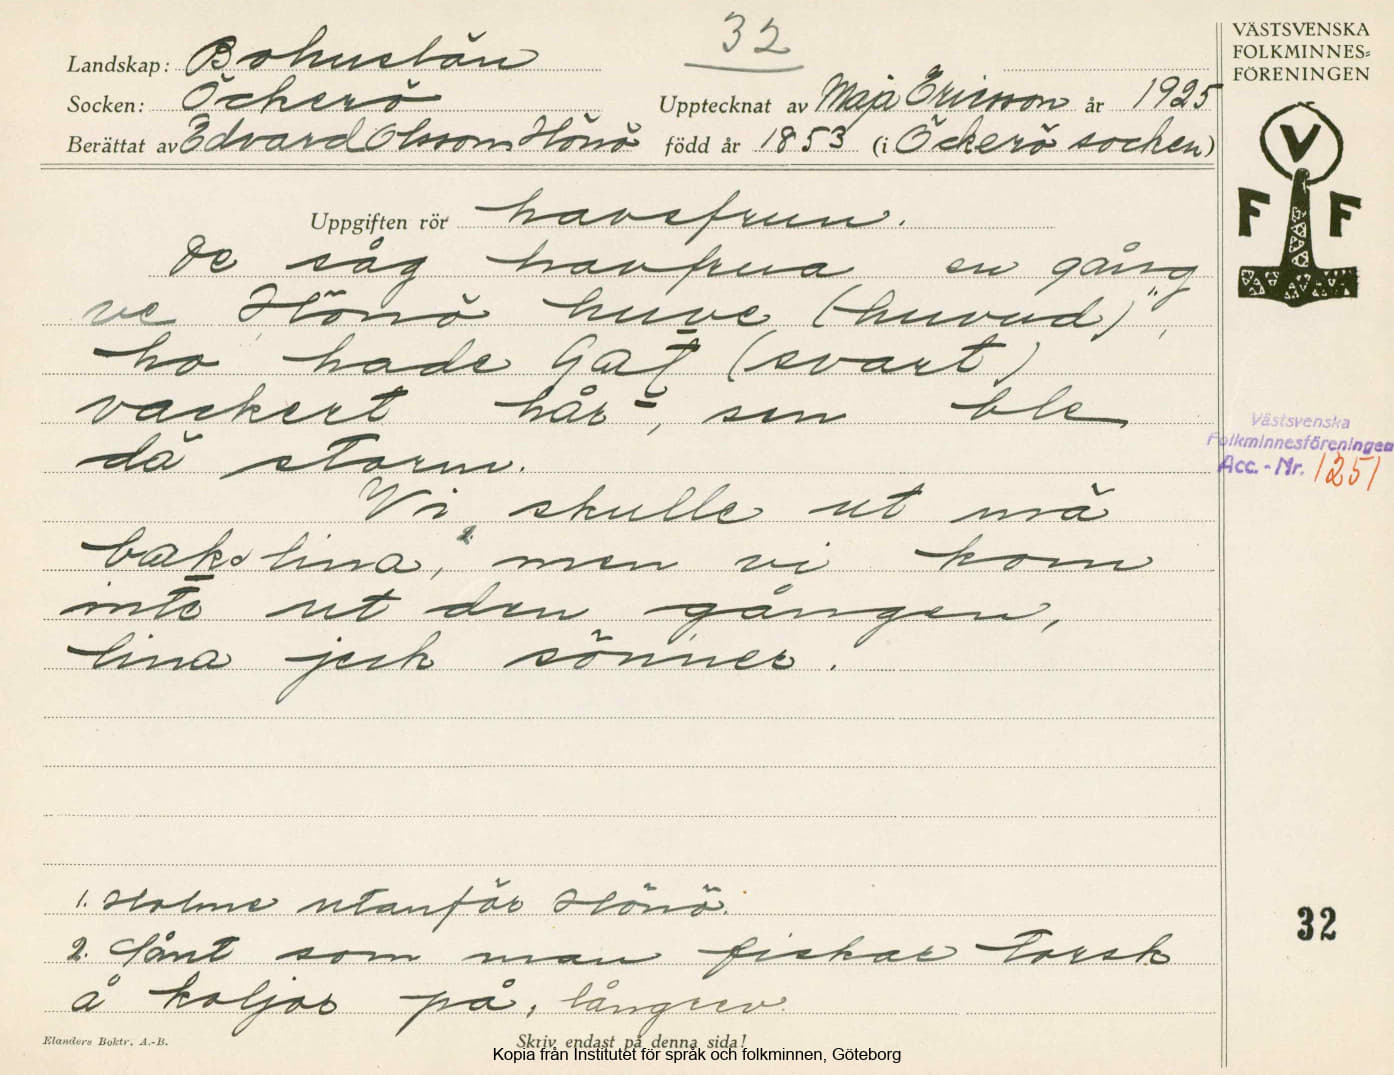 32
VÄSTSVENSKA
FOLKMINNES=
FÖRENINGEN
Landskap: Bohuslän
Socken: Öckerö
Upptecknat av Maja Ericsson år 1925
Berättat av Edvard Olsson, Hönö född år 1853 (i Öckerö socken)
V
F F
Uppgiften rör havsfrun.
De såg havfrua en gång
ve Hönö huve (huvud)",
ho hade (svart)
vackert hår, sen ble
dä storm.
Vi skulle ut mä
bakelina, men vi kom
inte ut den gången,
lina jeck sönner.
Västsvenska
Folkminnesföreningen
Acc.-Nr. 1251
1. Holme utanför Hönö.
2. Sånt som man fiskar torsk
å koljor på, långrev.
32
Elanders Boktr. A.-B.
Skriv endast på denna sida!
Kopia från Institutet för språk och folkminnen, Göteborg